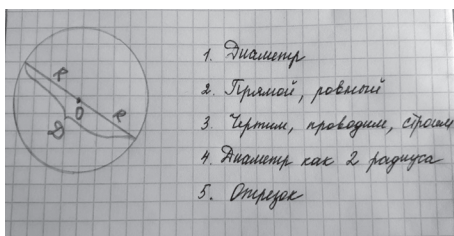 R
O
R
D
1. Диаметр
2. Прямой, ровный
3. Чертим, проводим, строим
4. Диаметр как 2 радиуса
5. Отрезок